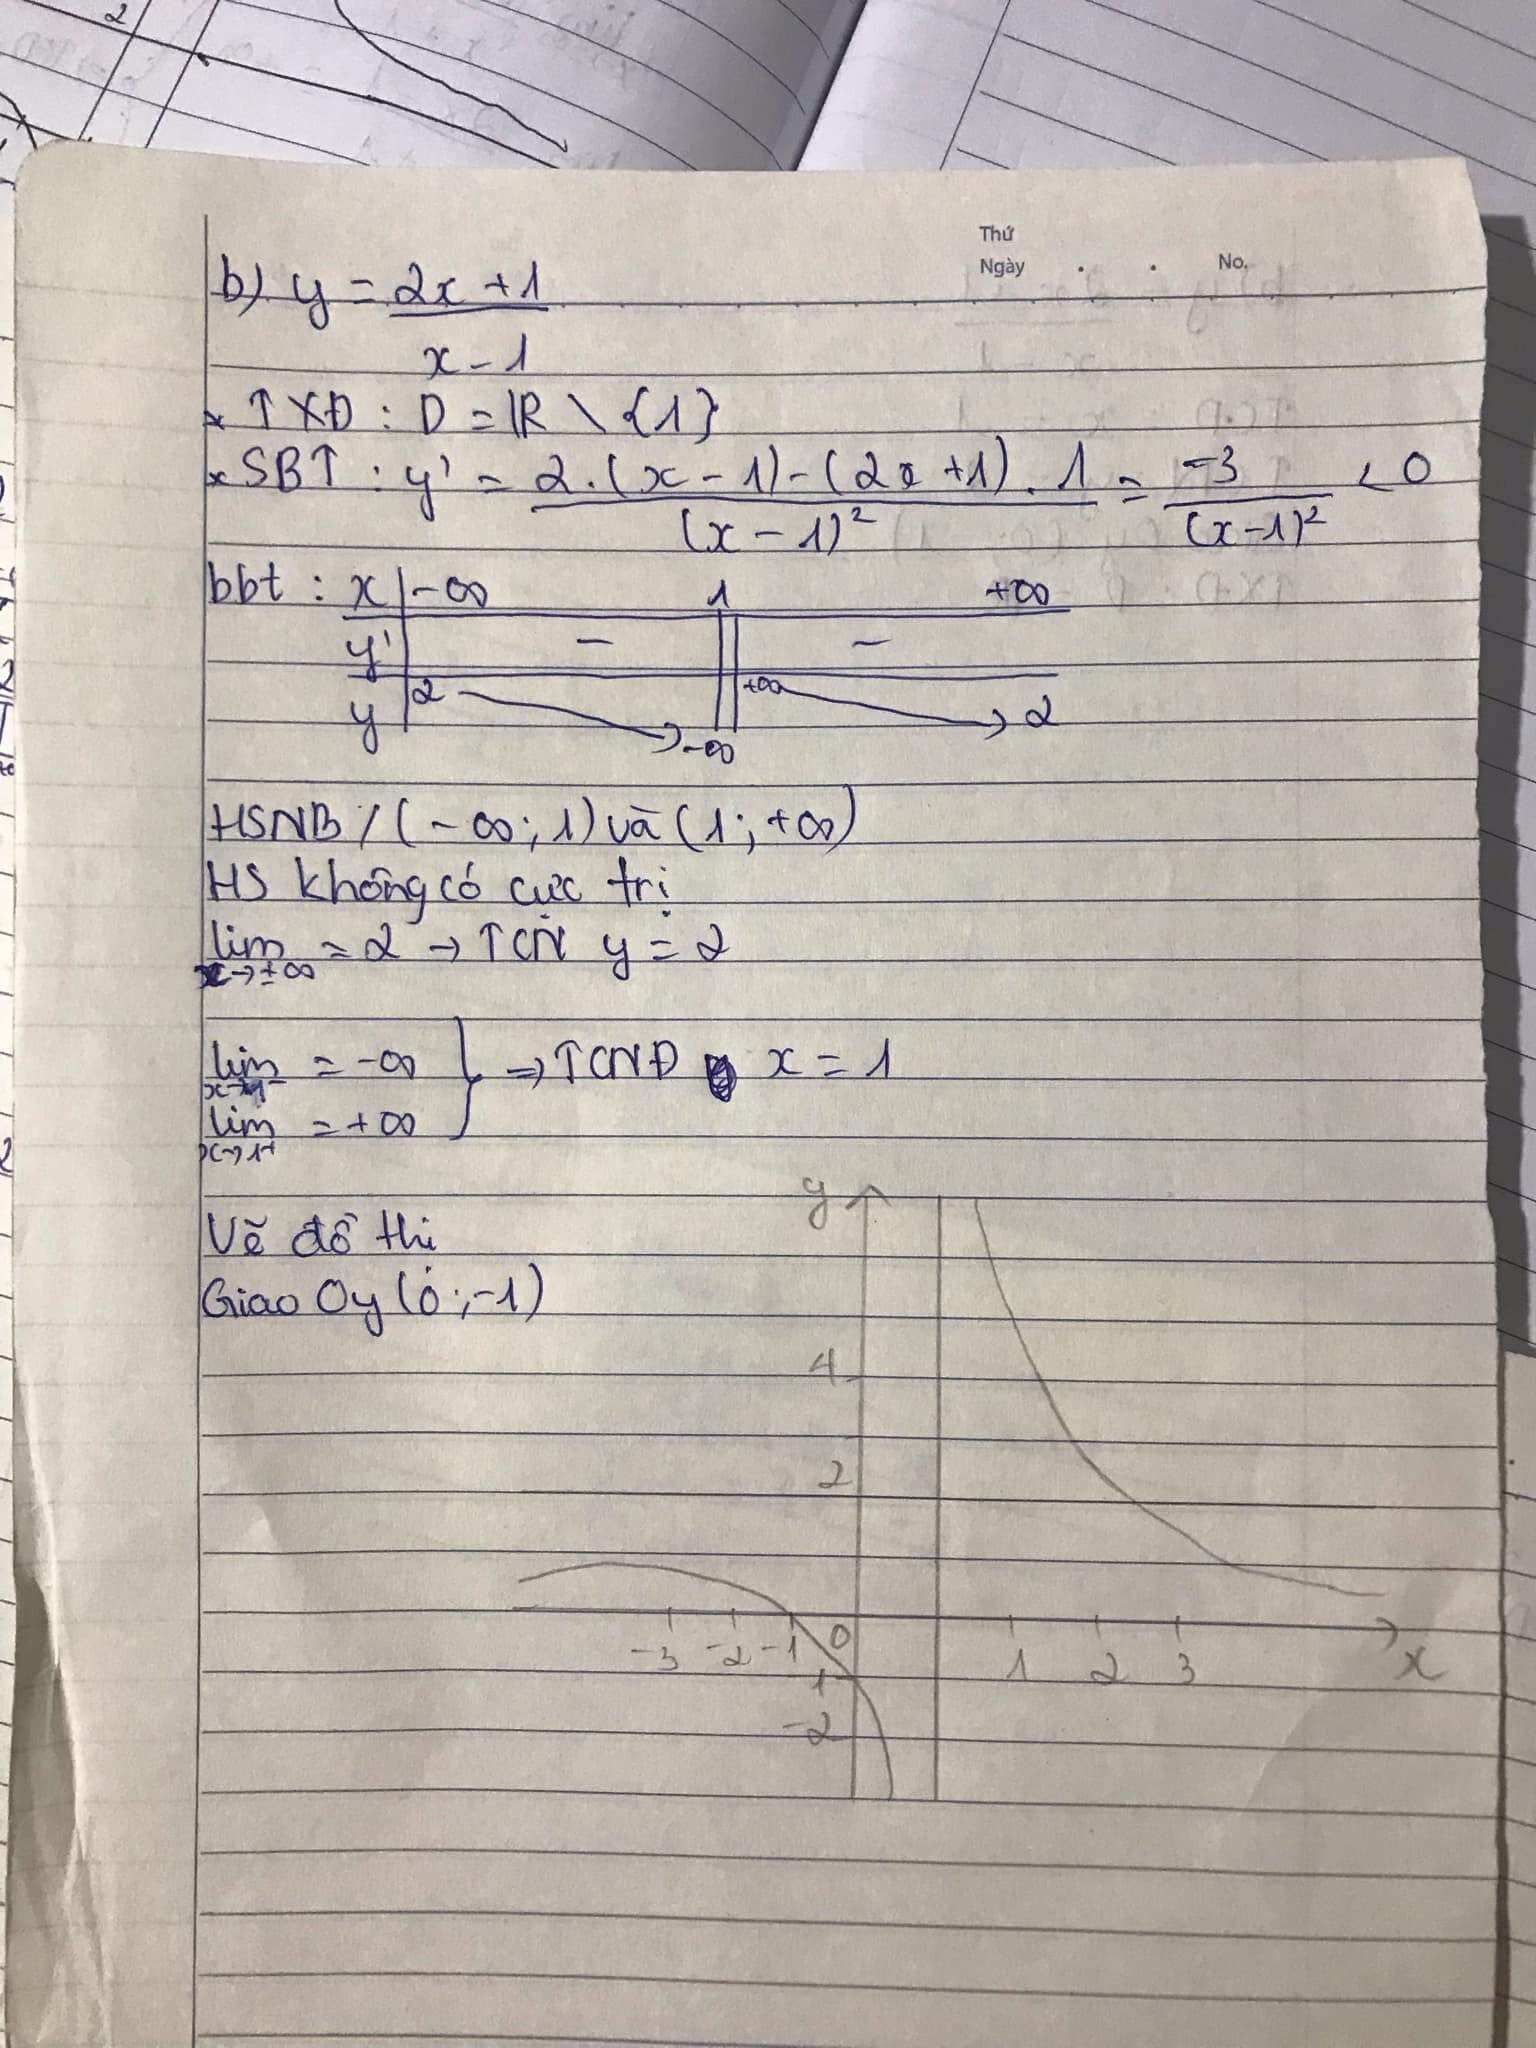 2
Thứ
Ngày . . No.
b) y = 2x + 1
x - 1
* TXĐ : D = ℝ \ {1}
* SBT : y' = 2.(x - 1) - (2x + 1) . 1 = -3 < 0
(x - 1)² (x-1)²
bbt : x -∞ 1 +∞
y' - -
y 2 -∞ +∞ 2
HSNB / (-∞; 1) và (1; +∞)
HS không có cực trị
lim = 2 → TCN y = 2
x→±∞
lim = -∞
x→1⁻
⇒ TCNĐ x = 1
lim = +∞
x→1⁺
Vẽ đồ thị
Giao Oy (0; -1)
y
4
2
-3 -2 -1 0 1 2 3 x
1
-2